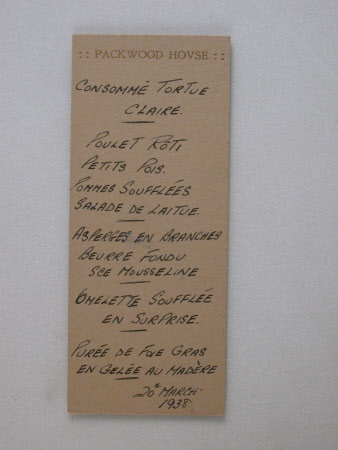 :: PACKWOOD HOVSE ::
CONSOMMÉ TORTUE
CLAIRE.
POULET RÔTI
PETITS POIS.
POMMES SOUFFLÉES
SALADE DE LAITUE.
ASPERGES EN BRANCHES
BEURRE FONDU
SCE MOUSSELINE
OMELETTE SOUFFLÉE
EN SURPRISE.
PURÉE DE FOIE GRAS
EN GELÉE AU MADÈRE
20th MARCH.
1938